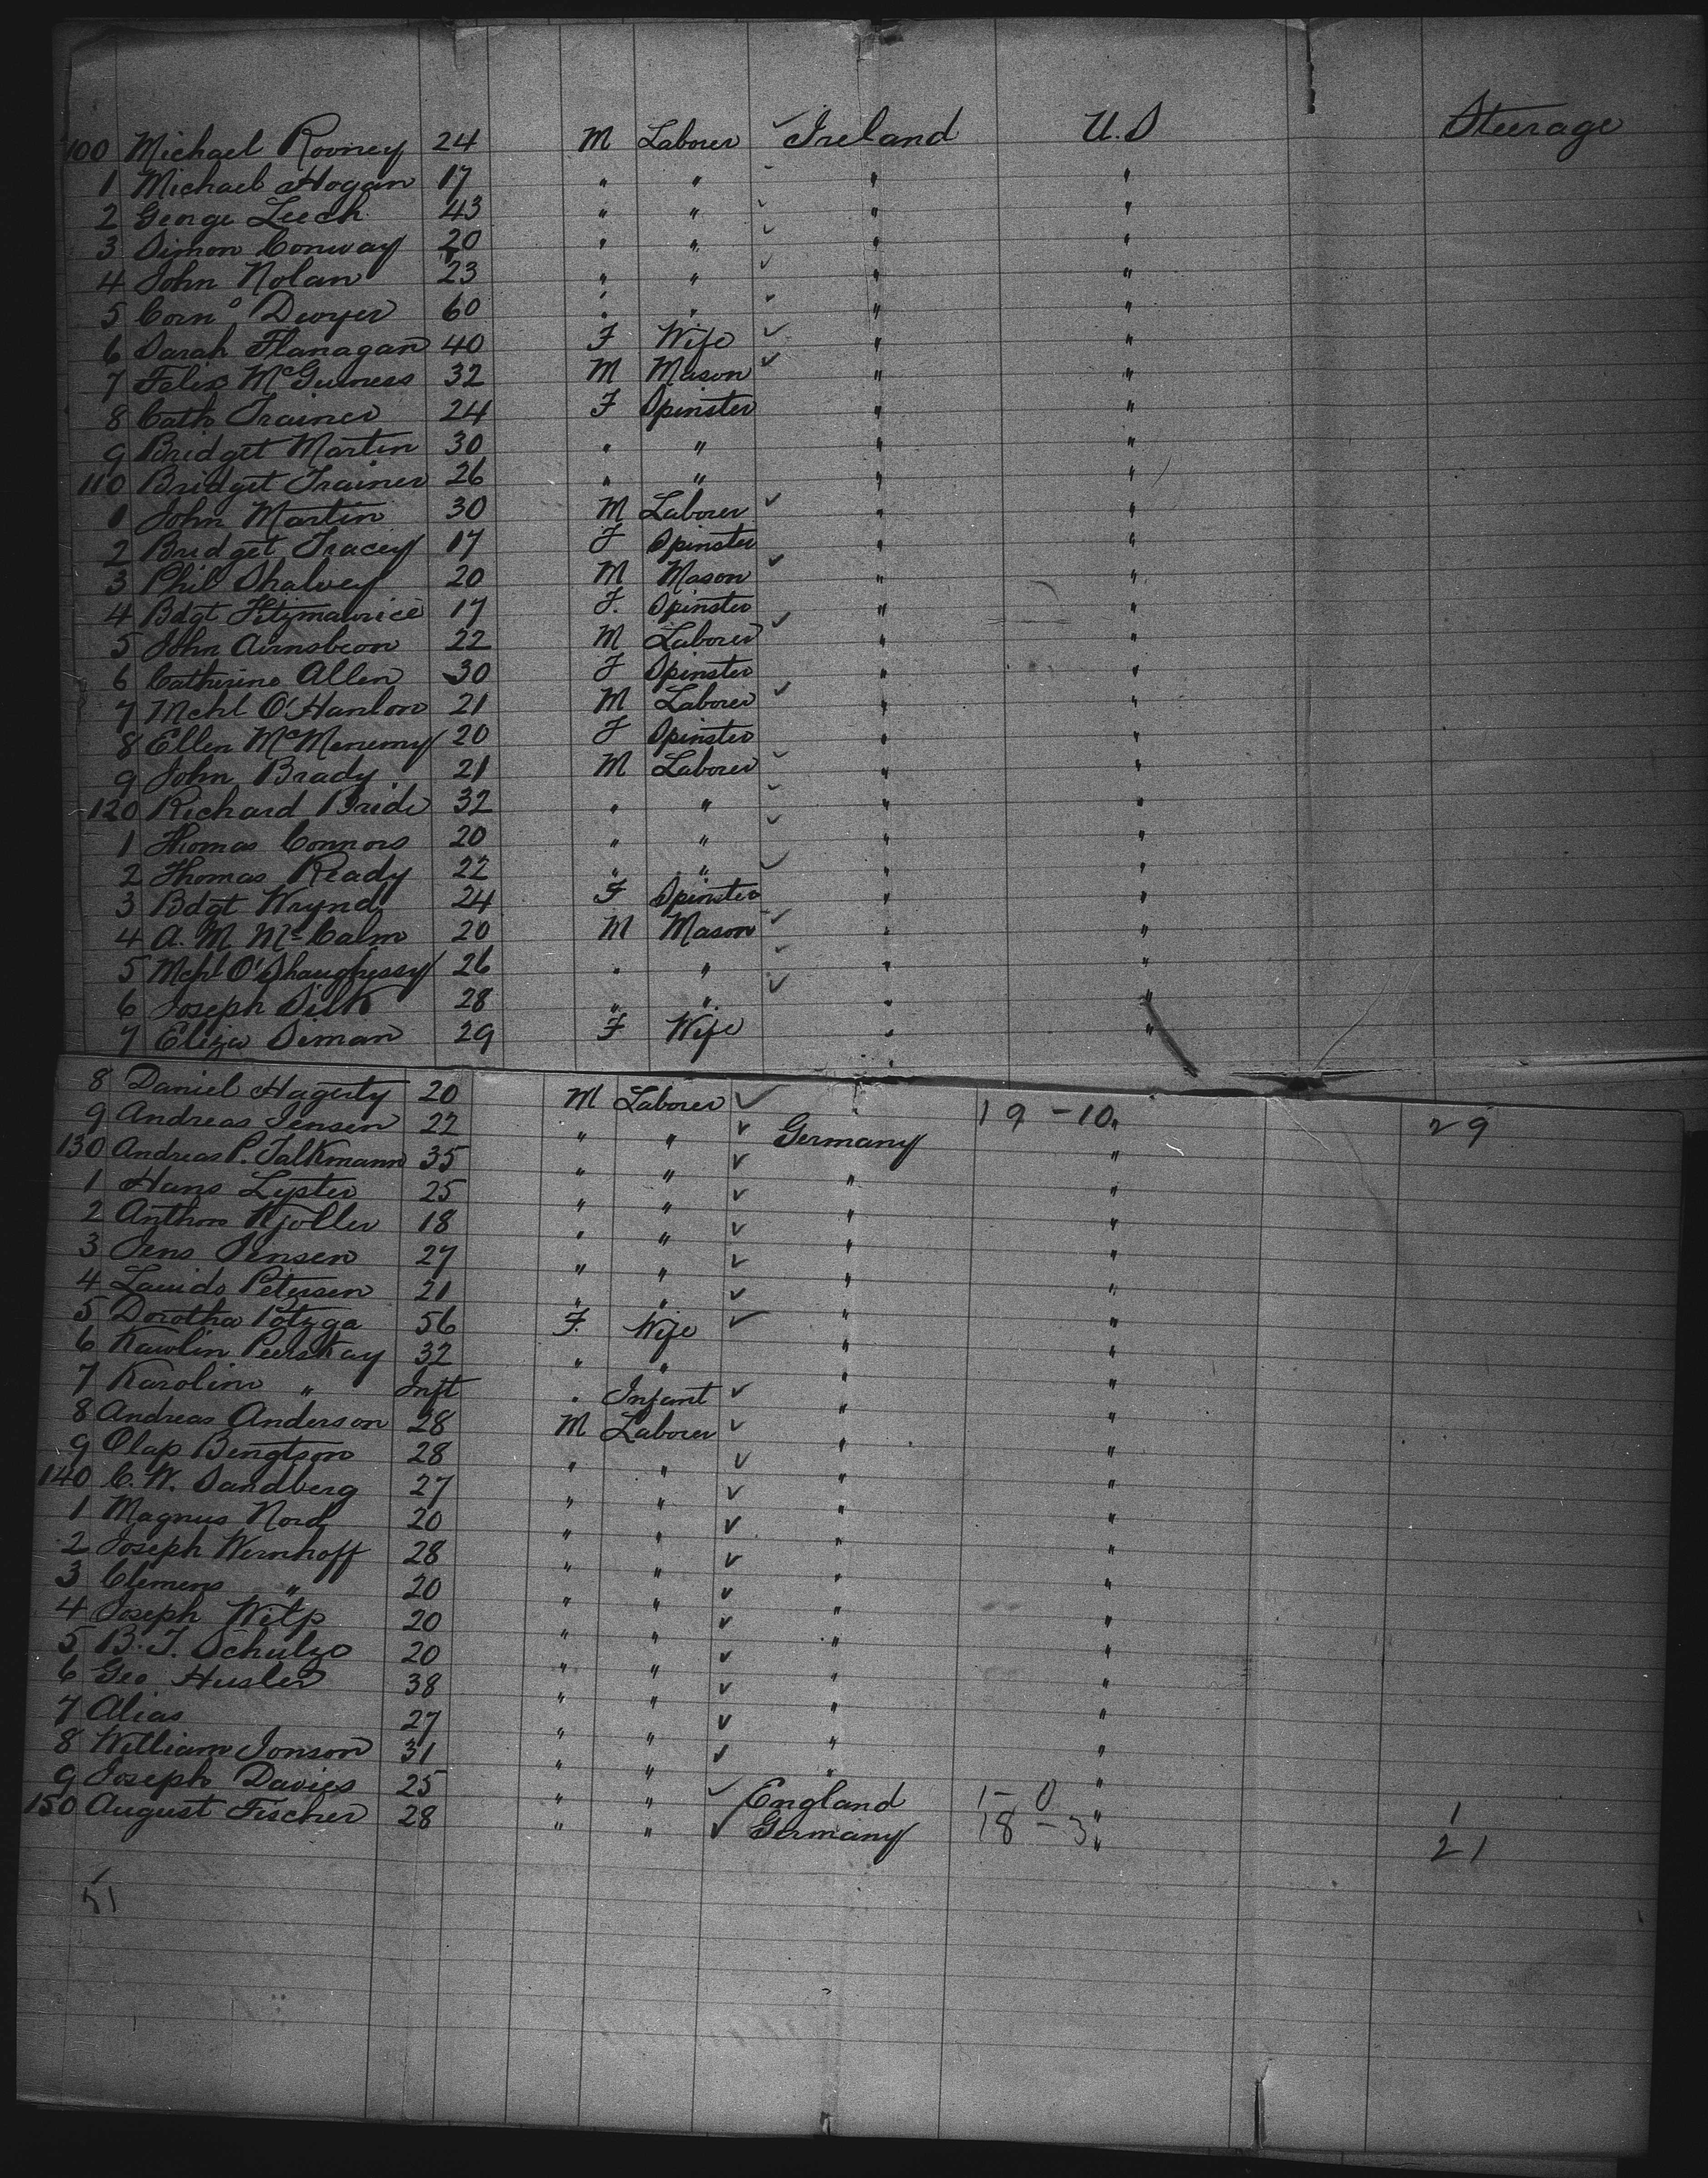 100 Michael Rooney 24 M Laborer ✓ Ireland U.S Steerage
1 Michael Hogan 17 " " " "
2 George Leech 43 " " ✓ " "
3 Simon Conway 20 " " ✓ " "
4 John Nolan 23 " " ✓ " "
5 Corn° Dwyer 60 " " ✓ " "
6 Sarah Flanagan 40 F Wife ✓ " "
7 Felix McGuiness 32 M Mason ✓ " "
8 Cath Trainer 24 F Spinster " "
9 Bridget Martin 30 " " " "
110 Bridget Trainer 26 " " " "
1 John Martin 30 M Laborer ✓ " "
2 Bridget Tracey 17 F Spinster " "
3 Phil Shalvey 20 M Mason ✓ " "
4 Bdgt Fitzmaurice 17 F. Spinster " "
5 John 22 M Laborer ✓ " "
6 Catherine Allen 30 F Spinster " "
7 Mchl O'Hanlon 21 M Laborer ✓ " "
8 Ellen McMenemy 20 F Spinster " "
9 John Brady 21 M Laborer ✓ " "
120 Richard Bride 32 " " ✓ " "
1 Thomas Connors 20 " " ✓ " "
2 Thomas Ready 22 " " ✓ " "
3 Bdgt Wrynd 24 F Spinster " "
4 A. M McCalm 20 M Mason ✓ " "
5 Mchl O'Shaughessy 26 " " ✓ " "
6 Joseph Silk 28 " " ✓ " "
7 Eliza Siman 29 F Wife " "
8 Daniel Hagerty 20 M Laborer ✓ " 19 - 10 " 29
9 Andreas Jensen 22 " " ✓ Germany "
130 Andreas P. Talkmann 35 " " ✓ " "
1 Hans Lyster 25 " " ✓ " "
2 Anthon Kjoller 18 " " ✓ " "
3 Jens Jensen 27 " " ✓ " "
4 Petersen 21 " " ✓ " "
5 Dorotha Potzga 56 F. Wife ✓ " "
6 Kawlin Peerskay 32 " " " "
7 Karolina " Inft " Infant ✓ " "
8 Andreas Anderson 28 M Laborer ✓ " "
9 Olap Bengtson 28 " " ✓ " "
140 C. W. Sandberg 27 " " ✓ " "
1 Magnus Nord 20 " " ✓ " "
2 Joseph Wernhoff 28 " " ✓ " "
3 Clemens " 20 " " ✓ " "
4 Joseph Wilp 20 " " ✓ " "
5 B. T. Schulze 20 " " ✓ " "
6 Geo Husler 38 " " ✓ " "
7 Alias 27 " " ✓ " "
8 William Jonson 31 " " ✓ " "
9 Joseph Davies 25 " " ✓ England 1 - 0 " 1
150 August Fischer 28 " " ✓ Germany 18 - 3 " 21
51